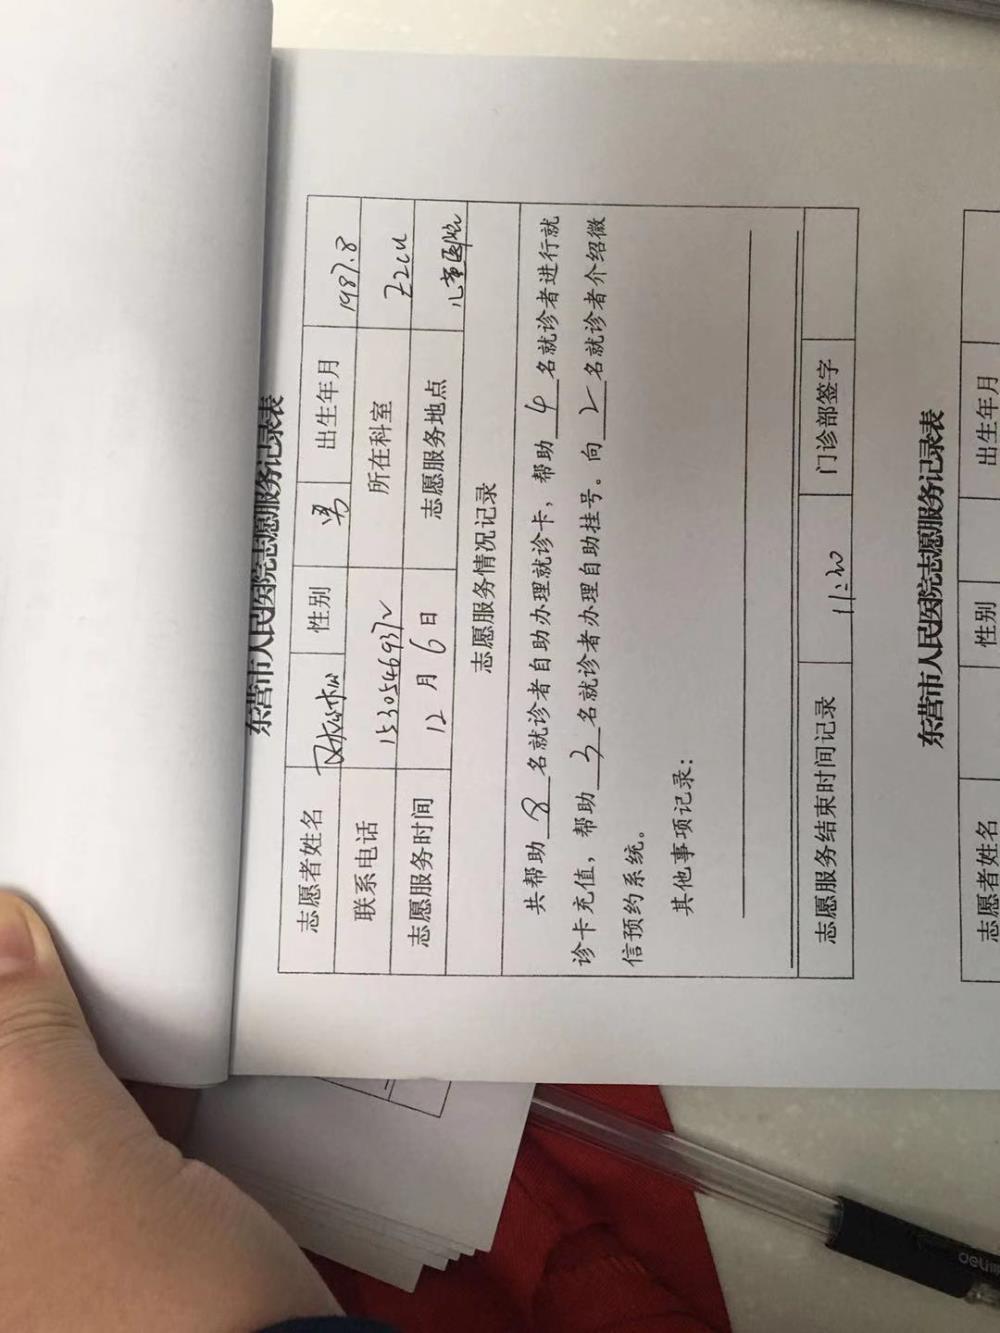 东营市人民医院志愿服务记录表
志愿者姓名 性别 男 出生年月 1987.8
联系电话 15305469372 所在科室
志愿服务时间 12月6日 志愿服务地点 儿童医院
志愿服务情况记录
共帮助 8 名就诊者自助办理就诊卡，帮助 4 名就诊者进行就
诊卡充值，帮助 3 名就诊者办理自助挂号。向 2 名就诊者介绍微
信预约系统。
其他事项记录：
志愿服务结束时间记录 11:20 门诊部签字
东营市人民医院志愿服务记录表
志愿者姓名 性别 出生年月
deli